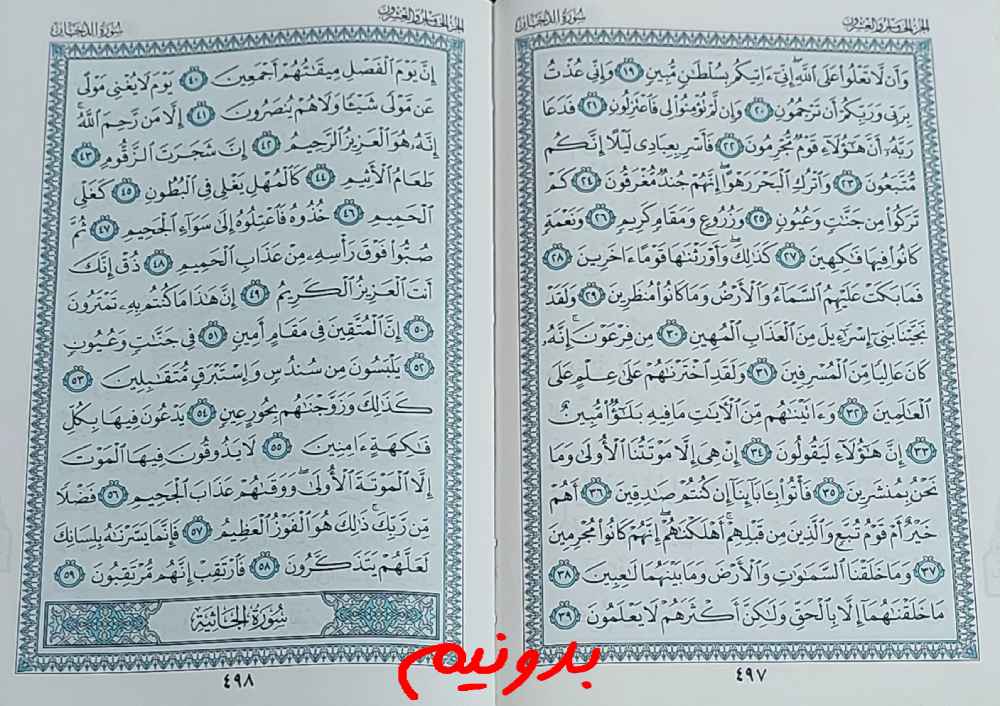 الجزء الخامس والعشرون
سورة الدخان
وَأَن لَّا تَعْلُوا۟ عَلَى ٱللَّهِ ۖ إِنِّىٓ ءَاتِيكُم بِسُلْطَـٰنٍ مُّبِينٍ ١٩ وَإِنِّى عُذْتُ
بِرَبِّى وَرَبِّكُمْ أَن تَرْجُمُونِ ٢٠ وَإِن لَّمْ تُؤْمِنُوا۟ لِى فَٱعْتَزِلُونِ ٢١ فَدَعَا
رَبَّهُۥٓ أَنَّ هَـٰٓؤُلَآءِ قَوْمٌ مُّجْرِمُونَ ٢٢ فَأَسْرِ بِعِبَادِى لَيْلًا إِنَّكُم
مُّتَّبَعُونَ ٢٣ وَٱتْرُكِ ٱلْبَحْرَ رَهْوًا ۖ إِنَّهُمْ جُندٌ مُّغْرَقُونَ ٢٤ كَمْ
تَرَكُوا۟ مِن جَنَّـٰتٍ وَعُيُونٍ ٢٥ وَزُرُوعٍ وَمَقَامٍ كَرِيمٍ ٢٦ وَنَعْمَةٍ
كَانُوا۟ فِيهَا فَـٰكِهِينَ ٢٧ كَذَٰلِكَ ۖ وَأَوْرَثْنَـٰهَا قَوْمًا ءَاخَرِينَ ٢٨
فَمَا بَكَتْ عَلَيْهِمُ ٱلسَّمَآءُ وَٱلْأَرْضُ وَمَا كَانُوا۟ مُنظَرِينَ ٢٩ وَلَقَدْ
نَجَّيْنَا بَنِىٓ إِسْرَٰٓءِيلَ مِنَ ٱلْعَذَابِ ٱلْمُهِينِ ٣٠ مِن فِرْعَوْنَ ۚ إِنَّهُۥ
كَانَ عَالِيًا مِّنَ ٱلْمُسْرِفِينَ ٣١ وَلَقَدِ ٱخْتَرْنَـٰهُمْ عَلَىٰ عِلْمٍ عَلَى
ٱلْعَـٰلَمِينَ ٣٢ وَءَاتَيْنَـٰهُم مِّنَ ٱلْـَٔايَـٰتِ مَا فِيهِ بَلَـٰٓؤٌا۟ مُّبِينٌ
٣٣ إِنَّ هَـٰٓؤُلَآءِ لَيَقُولُونَ ٣٤ إِنْ هِىَ إِلَّا مَوْتَتُنَا ٱلْأُولَىٰ وَمَا
نَحْنُ بِمُنشَرِينَ ٣٥ فَأْتُوا۟ بِـَٔابَآئِنَآ إِن كُنتُمْ صَـٰدِقِينَ ٣٦ أَهُمْ
خَيْرٌ أَمْ قَوْمُ تُبَّعٍ وَٱلَّذِينَ مِن قَبْلِهِمْ ۚ أَهْلَكْنَـٰهُمْ ۖ إِنَّهُمْ كَانُوا۟ مُجْرِمِينَ
٣٧ وَمَا خَلَقْنَا ٱلسَّمَـٰوَٰتِ وَٱلْأَرْضَ وَمَا بَيْنَهُمَا لَـٰعِبِينَ ٣٨
مَا خَلَقْنَـٰهُمَآ إِلَّا بِٱلْحَقِّ وَلَـٰكِنَّ أَكْثَرَهُمْ لَا يَعْلَمُونَ ٣٩
٤٩٧
الجزء الخامس والعشرون
سورة الدخان
إِنَّ يَوْمَ ٱلْفَصْلِ مِيقَـٰتُهُمْ أَجْمَعِينَ ٤٠ يَوْمَ لَا يُغْنِى مَوْلًى
عَن مَّوْلًى شَيْـًٔا وَلَا هُمْ يُنصَرُونَ ٤١ إِلَّا مَن رَّحِمَ ٱللَّهُ ۚ
إِنَّهُۥ هُوَ ٱلْعَزِيزُ ٱلرَّحِيمُ ٤٢ إِنَّ شَجَرَتَ ٱلزَّقُّومِ ٤٣
طَعَامُ ٱلْأَثِيمِ ٤٤ كَٱلْمُهْلِ يَغْلِى فِى ٱلْبُطُونِ ٤٥ كَغَلْىِ
ٱلْحَمِيمِ ٤٦ خُذُوهُ فَٱعْتِلُوهُ إِلَىٰ سَوَآءِ ٱلْجَحِيمِ ٤٧ ثُمَّ
صُبُّوا۟ فَوْقَ رَأْسِهِۦ مِنْ عَذَابِ ٱلْحَمِيمِ ٤٨ ذُقْ إِنَّكَ
أَنتَ ٱلْعَزِيزُ ٱلْكَرِيمُ ٤٩ إِنَّ هَـٰذَا مَا كُنتُم بِهِۦ تَمْتَرُونَ
٥٠ إِنَّ ٱلْمُتَّقِينَ فِى مَقَامٍ أَمِينٍ ٥١ فِى جَنَّـٰتٍ وَعُيُونٍ
٥٢ يَلْبَسُونَ مِن سُندُسٍ وَإِسْتَبْرَقٍ مُّتَقَـٰبِلِينَ ٥٣
كَذَٰلِكَ وَزَوَّجْنَـٰهُم بِحُورٍ عِينٍ ٥٤ يَدْعُونَ فِيهَا بِكُلِّ
فَـٰكِهَةٍ ءَامِنِينَ ٥٥ لَا يَذُوقُونَ فِيهَا ٱلْمَوْتَ
إِلَّا ٱلْمَوْتَةَ ٱلْأُولَىٰ ۖ وَوَقَىٰهُمْ عَذَابَ ٱلْجَحِيمِ ٥٦ فَضْلًا
مِّن رَّبِّكَ ۚ ذَٰلِكَ هُوَ ٱلْفَوْزُ ٱلْعَظِيمُ ٥٧ فَإِنَّمَا يَسَّرْنَـٰهُ بِلِسَانِكَ
لَعَلَّهُمْ يَتَذَكَّرُونَ ٥٨ فَٱرْتَقِبْ إِنَّهُم مُّرْتَقِبُونَ ٥٩
سُورَةُ الجَاثِيَةِ
٤٩٨
بدونیم